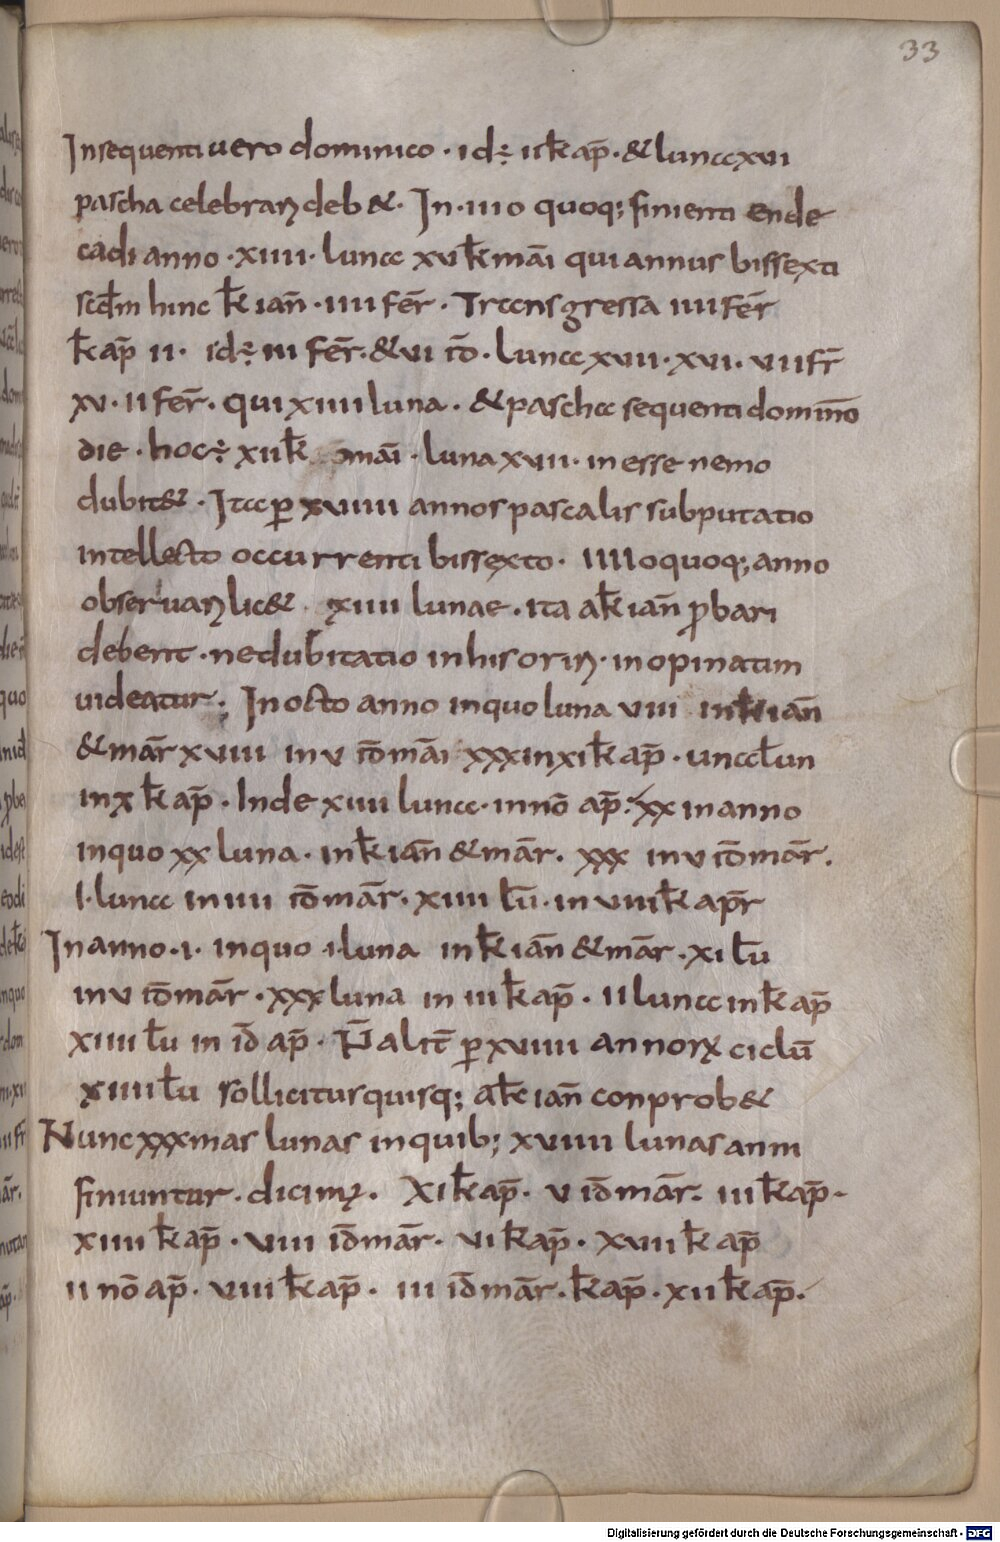 33
Insequenti uero dominico · id÷ iikap̄ · & luna xvi
pascha celebrari deb&· In · iiio quoq; finienti ende
cadi anno · xiiii · luna xv k̄ mai qui annus bissexti
scdm hinc k̄ ian̄ · iiii fer̄ · Transgressa iiii fer̄
k̄ ap̄ ii · id÷ iii fer̄ · & vi id̄ · luna xvii · xvi · vii fr̄
xv · ii fer̄ · qui xiiii luna · & pascha sequenti dominō
die · hoc÷ xii k̄ mai · luna xvii · in esse nemo
dubit& · Ita p xviiii annos pascalis subputatio
intellecto occurrenti bissexto · IIIIo quoq; anno
obseruari lic& xiiii lunae · ita ak̄ ian̄ pbari
debent · ne dubitatio in his oriri · inopinatim
uideatur; In octo anno inquo luna viii ink̄ ian̄
& mar̄ xviii in v id̄ mai xxx in xi k̄ ap̄ · una lun
in x k̄ ap̄ · Inde xiiii luna · in nō ap̄ · xx in anno
inquo xx luna · in k̄ ian̄ & mar̄ · xxx in v id̄ mar̄ ·
I · luna in iiii id̄ mar̄ · xiiii lū · in viiii k̄ apr̄
In anno · i · inquo · i · luna in k̄ ian̄ & mar̄ · xi lū
in v id̄ mar̄ · xxx luna in iii k̄ ap̄ · II luna in k̄ ap̄
xiiii lū in id̄ ap̄ · alit̄ p xviiii annorꝝ ciclū
xiiii lū sollicitus quisq; ak̄ ian̄ conprob&
Nunc xxxmas lunas in quib; xviiii lunas anni
finiuntur · dicim · XI k̄ ap̄ · v id̄ mar̄ · iii k̄ ap̄ ·
xiiii k̄ ap̄ · viii id̄ mar̄ · vi k̄ ap̄ · xviii k̄ ap̄
ii nō ap̄ · viii k̄ ap̄ · iii id̄ mar̄ · k̄ ap̄ · xii k̄ ap̄ ·
Digitalisierung gefördert durch die Deutsche Forschungsgemeinschaft - DFG